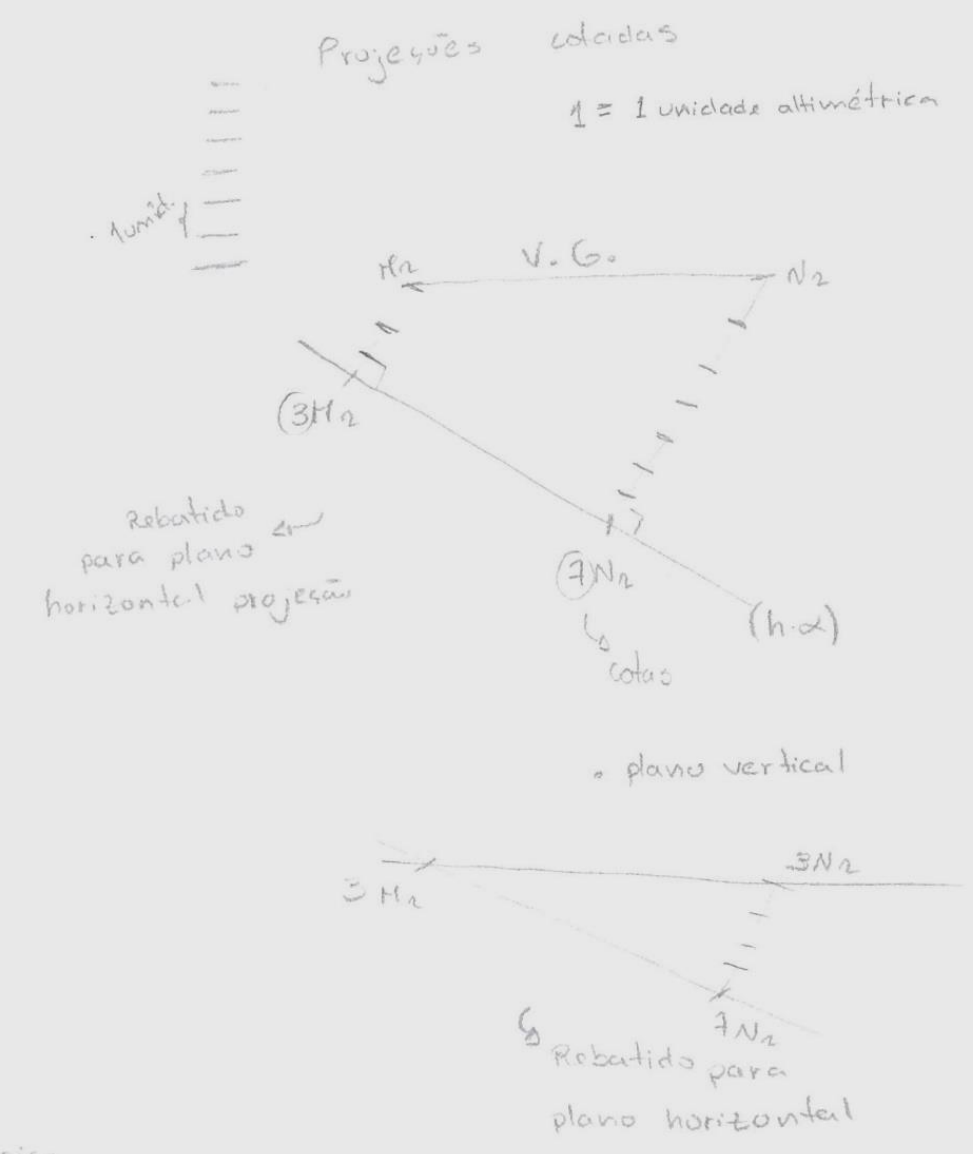 Projeções cotadas
1 = 1 unidade altimétrica
1 unid.
V. G.
M2
N2
3M2
Rebatido
para plano
horizontal projeção
7N2
(h.α)
cotas
• plano vertical
3N2
3 M2
7N2
Rebatido para
plano horizontal